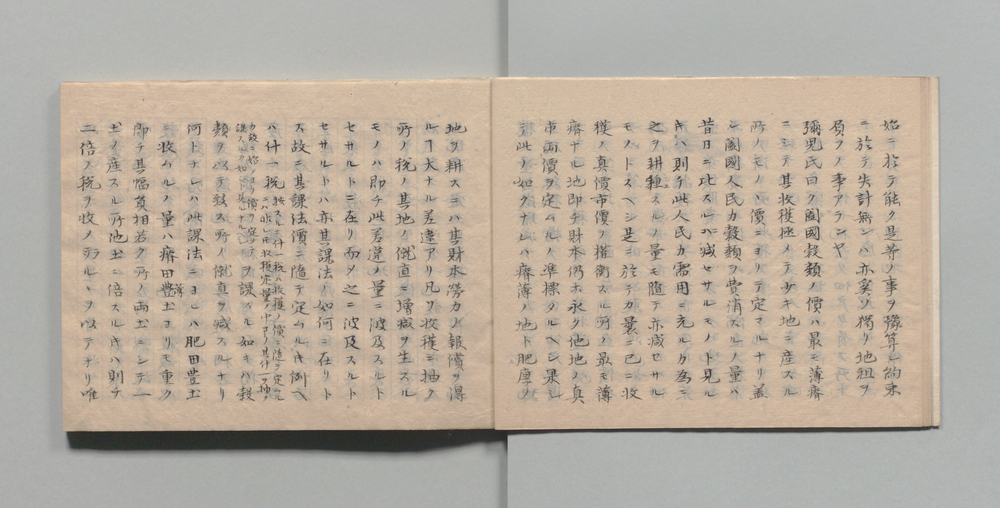 始ニ於テ能ク是等ノ事ヲ豫算シ約束
ニ於テ失計無ンハ亦奚ソ獨リ地租ヲ
負フノ事アランヤ
彌児氏曰ク闔國穀類ノ價ハ最モ薄瘠
ニシテ其收穫極メテ少キ地ニ産スル
所ノモノヽ價ニヨリテ定マルナリ蓋
シ闔國人民カ穀類ヲ費消スルノ量ハ
昔日ニ比スルニ減セサルモノト見ル
片ハ則チ此人民カ需用ニ充ルカ為ニ
之ヲ耕種スルノ量モ隨テ亦減セサル
モノトスヘシ是ニ於テカ曩ニ已ニ收
穫ノ真價市價ヲ權衡スル所ノ最モ薄
瘠ナル地即チ財本仍ホ永ク他地ノ真
市両價ヲ定ムルノ準標タルヘシ果シ
テ此ノ如クナレハ瘠薄ノ地ト肥厚ノ
地ヲ耕スニハ其財本勞力ノ報償ヲ得
ルヿ大ナル差違アリ凡ソ收穫ニ抽ク
所ノ税ノ其地ノ僦直ニ増減ヲ生スル
モノハ即チ此差違ノ量ニ波及スルト
セサルトニ在リ而〆之ニ波及スルト
セサルトハ亦其課法ノ如何ニ在リト
ス故ニ其課法價ニ隨テ定ムル片例ヘ
ハ什一税
類ヲ以テ数スル所ノ僦直ヲ減スルナリ
何トナレハ此課法ニヨレハ肥田豊土
ニ收ムルノ量ハ瘠田薄土ヨリモ重ク
即チ其幅員相若ク所ノ両土ニシテ一
土ノ産スル所他土ニ倍スル片ハ則チ
二倍ノ税ヲ收メラルヽヲ以テナリ唯